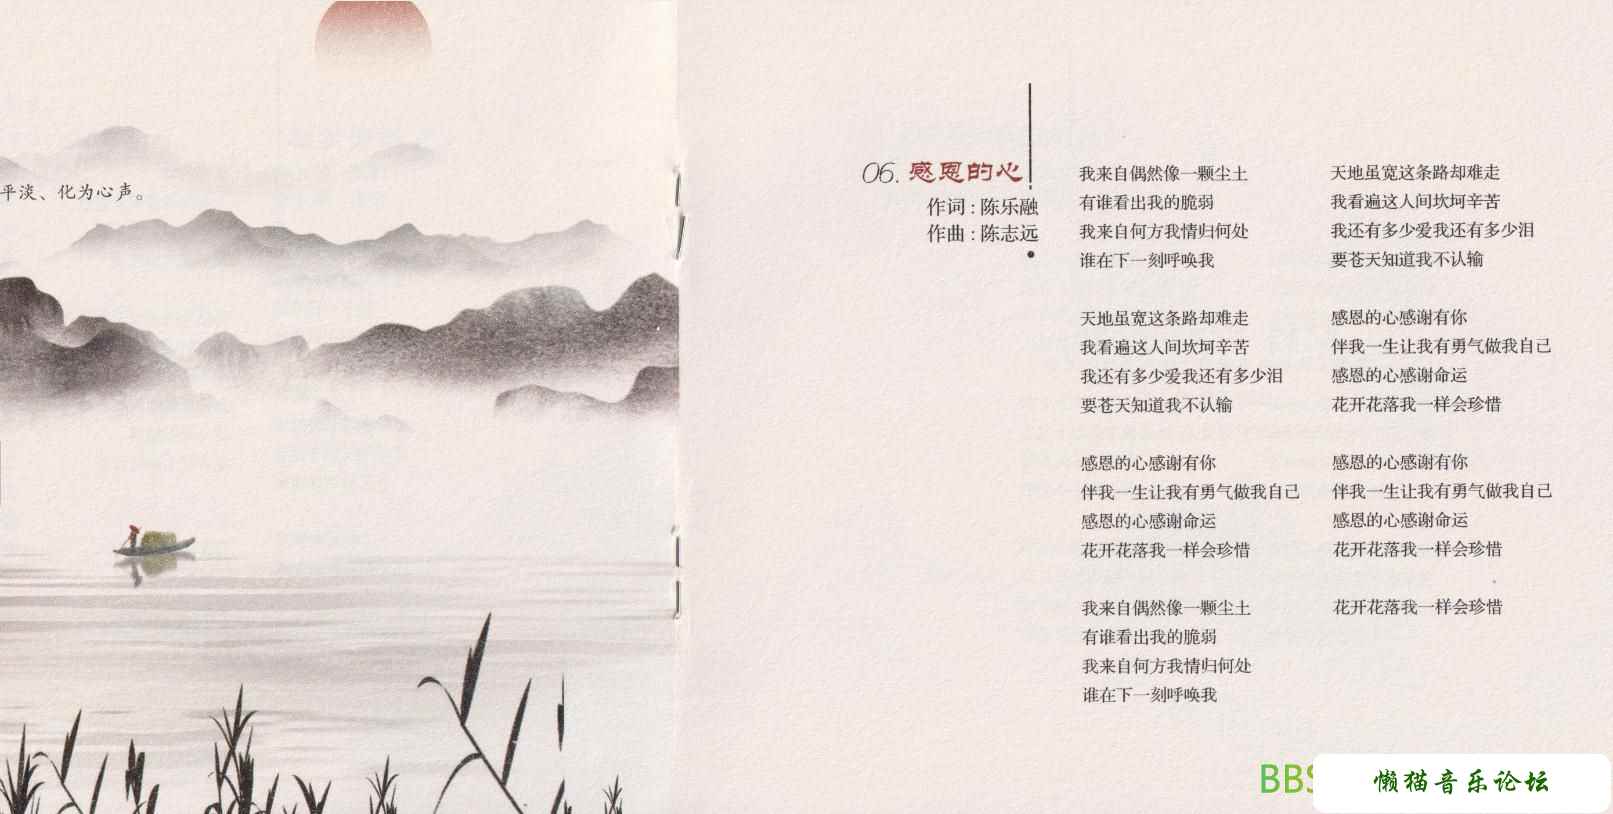 平淡、化为心声。
06. 感恩的心
作词：陈乐融
作曲：陈志远
我来自偶然像一颗尘土
有谁看出我的脆弱
我来自何方我情归何处
谁在下一刻呼唤我
天地虽宽这条路却难走
我看遍这人间坎坷辛苦
我还有多少爱我还有多少泪
要苍天知道我不认输
感恩的心感谢有你
伴我一生让我有勇气做我自己
感恩的心感谢命运
花开花落我一样会珍惜
我来自偶然像一颗尘土
有谁看出我的脆弱
我来自何方我情归何处
谁在下一刻呼唤我
天地虽宽这条路却难走
我看遍这人间坎坷辛苦
我还有多少爱我还有多少泪
要苍天知道我不认输
感恩的心感谢有你
伴我一生让我有勇气做我自己
感恩的心感谢命运
花开花落我一样会珍惜
感恩的心感谢有你
伴我一生让我有勇气做我自己
感恩的心感谢命运
花开花落我一样会珍惜
花开花落我一样会珍惜
BBS
懒猫音乐论坛